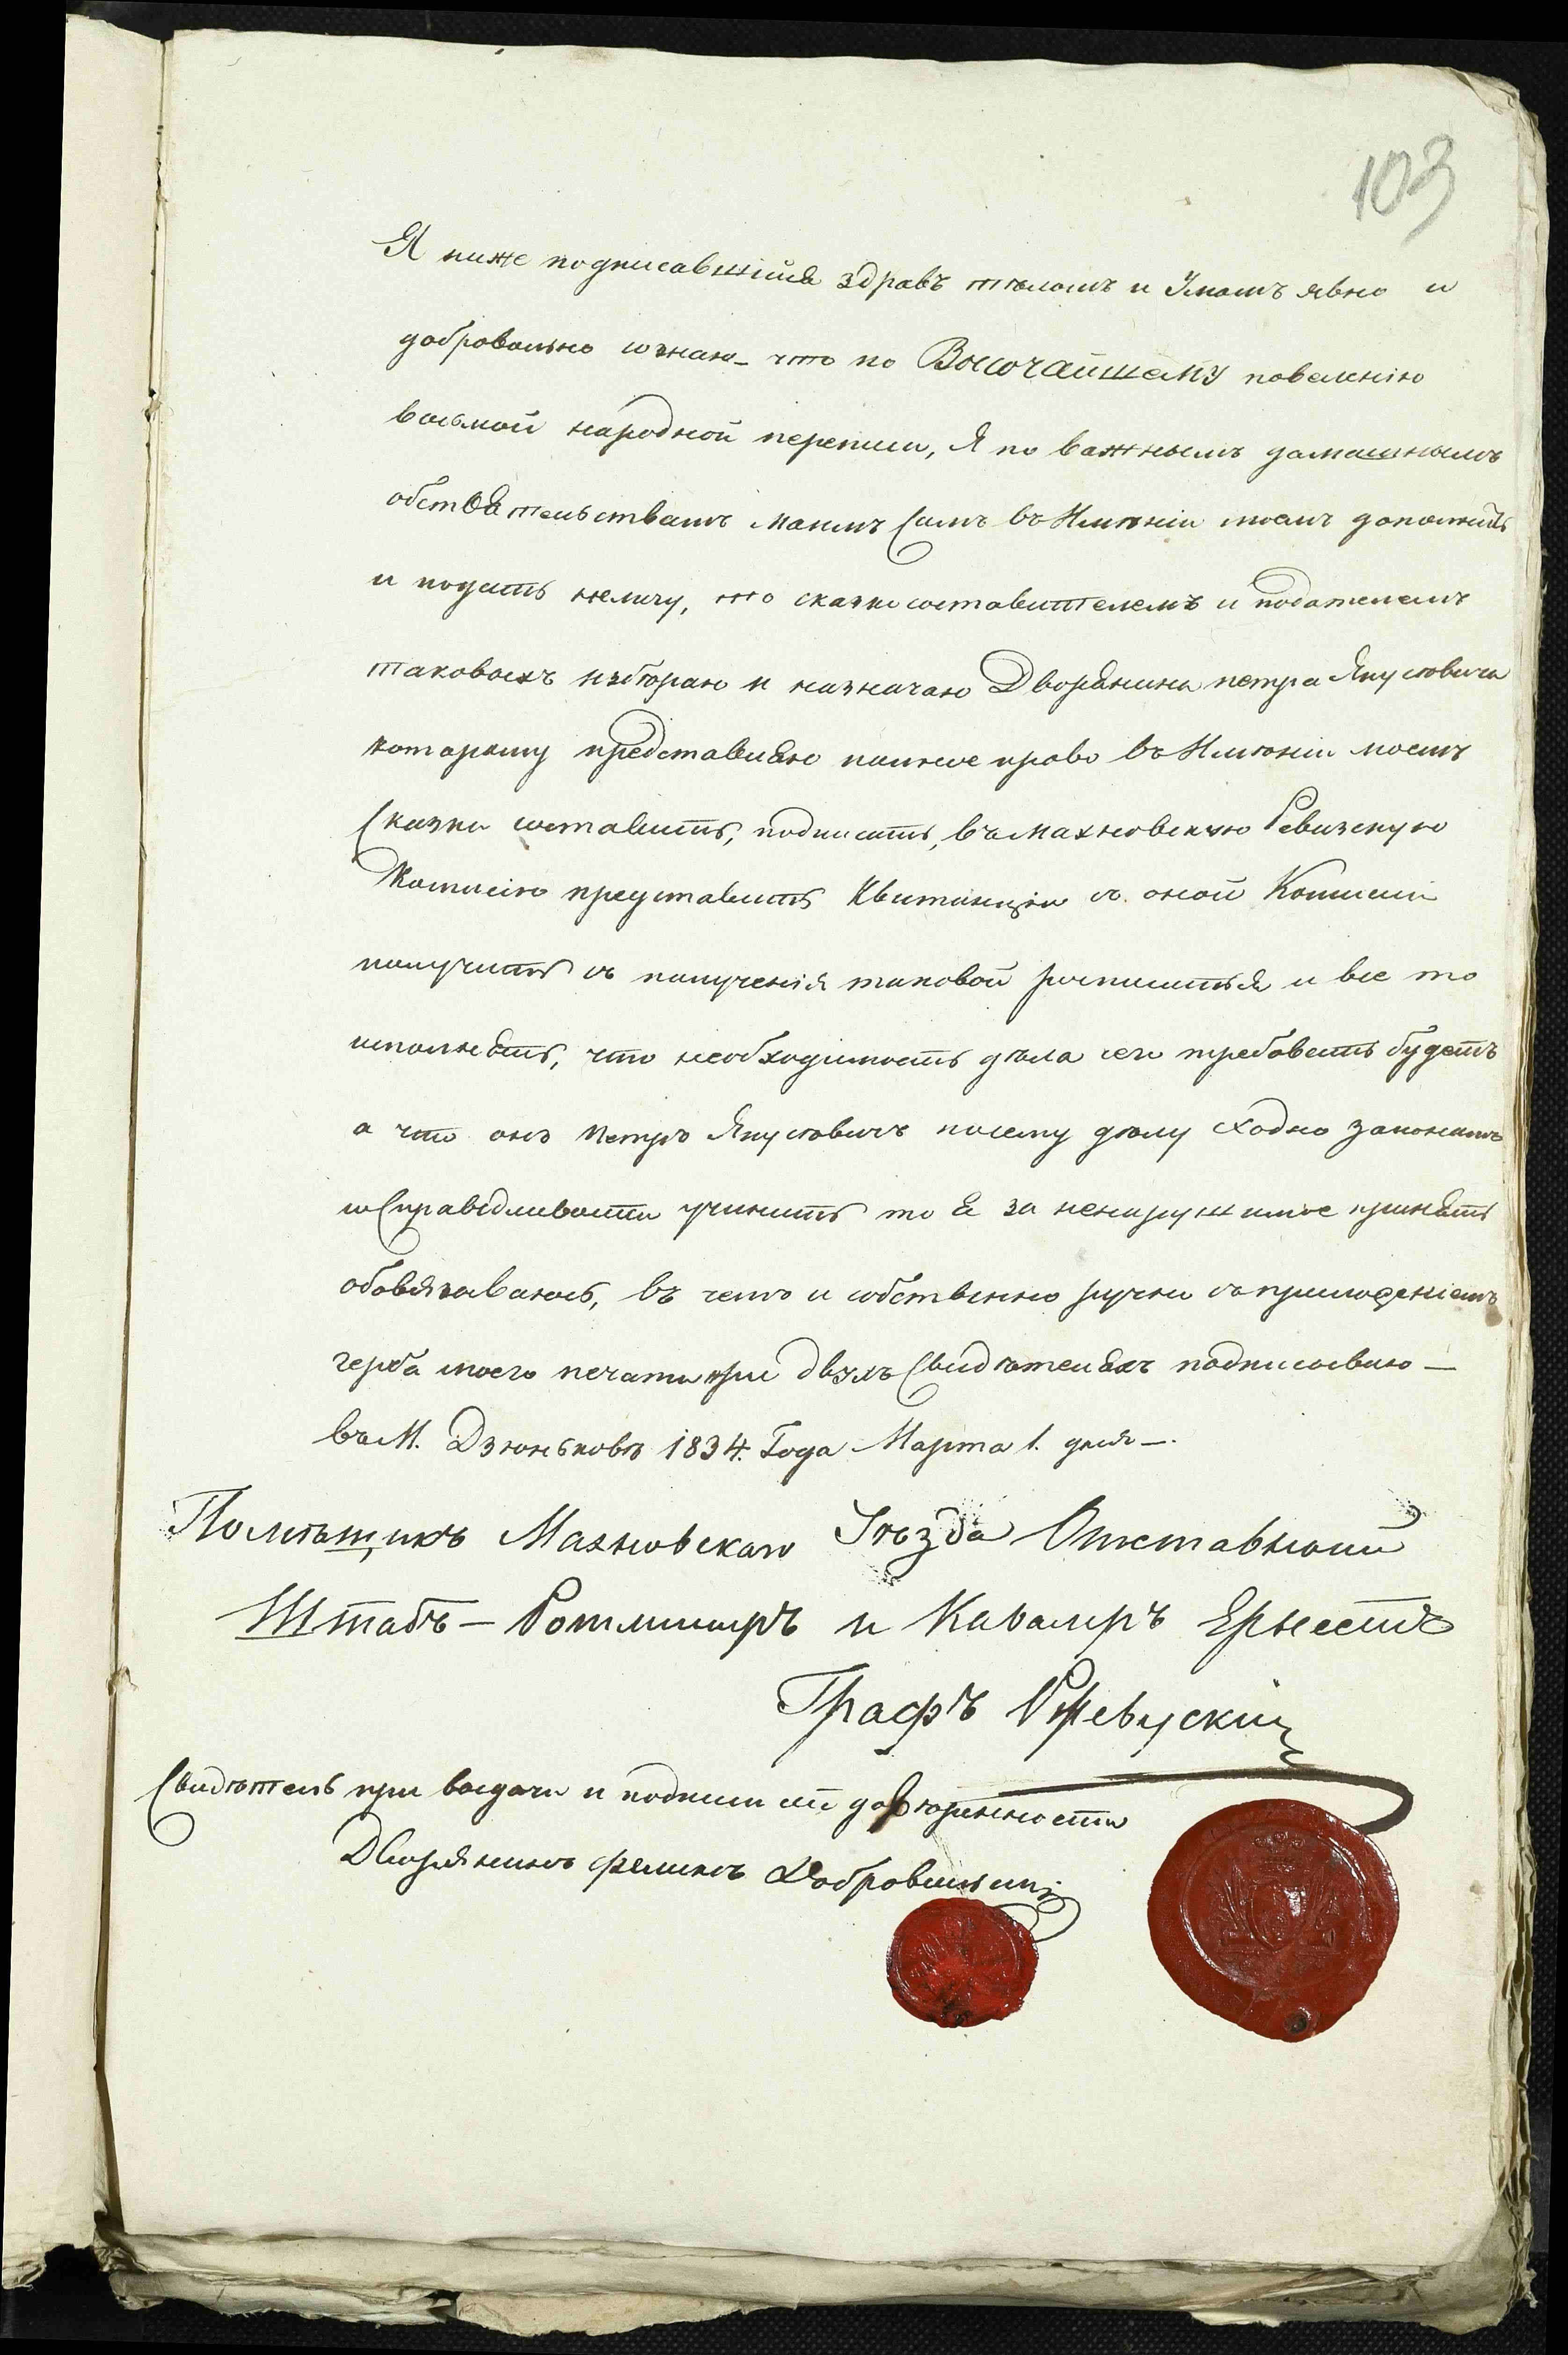 103
Я ниже подписавшійся здравъ тѣломъ и Умомъ явно и
добровольно сознаю – что по Высочайшему повелѣнію
восьмой народной переписи, Я по важнымъ домашнымъ
обстоятельствамъ моимъ Самъ въ Имѣніи моемъ дополнить
и подать немогу, то сказки составителемъ и подателемъ
таковыхъ избираю и назначаю Дворянина петра Янустовича
которому представляю полное право въ Имѣніи моемъ
Сказки составить, подписать, въ Махновскую Ревизскую
Комисію представить Квитанціи съ оной Комисіи
получить въ полученія таковой росписаться и все то
исполнять, что необходимость дѣла сего требовать будетъ
а что онъ петръ Янустовичъ посему дѣлу сходно законамъ
и Справедливости учинитъ то Я за ненарушимое принять
обовязываюсь, въ чемъ и собственно ручно съ приложеніемъ
герба моего печати при двухъ Свидѣтеляхъ подписываю –
въ М. Дзюньковѣ 1834. Года Марта 1. дня –.
Помѣщикъ Махновскаго Уѣзда Отставный
Штабъ – Ротмистръ и Кавалеръ Ернестъ
Графъ Ржевускій
Свидѣтель при выдачи и подписи сей довѣренности
Дворянинъ феликъ Добровольскій